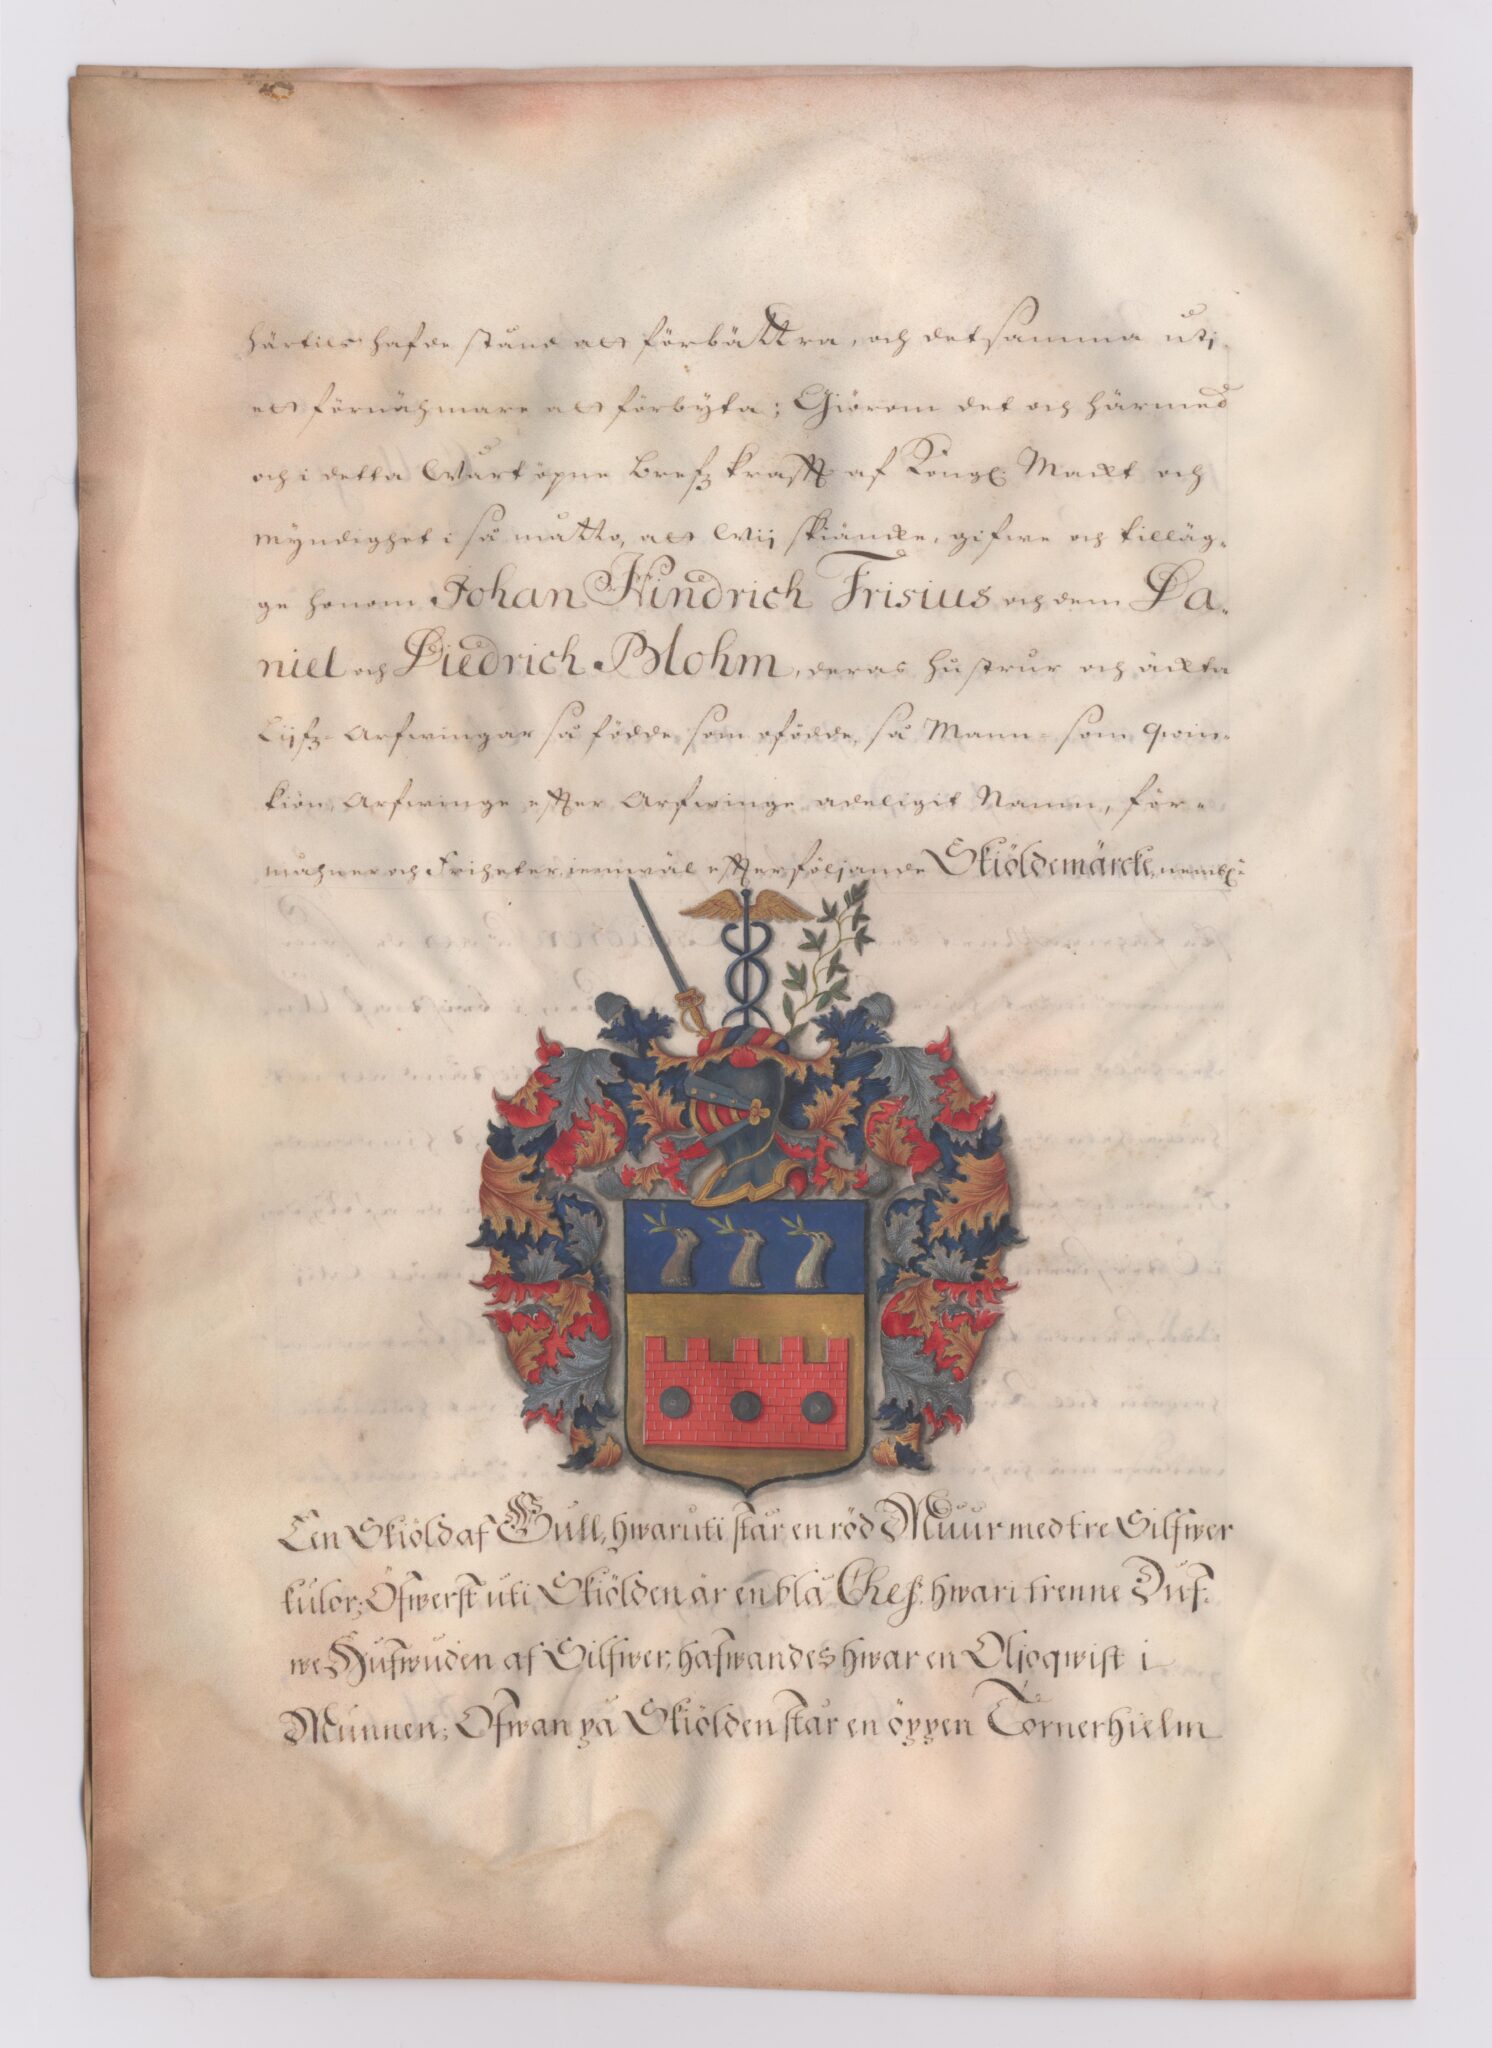 härtils hafde stånd att förbättra, och detsamma utj
ett förnähmare att förbÿta; Giörom det och härmed
och i detta Wårt öpne Brefz krafft af Kongl. Mackt och
myndighet i så måtto, att Wij skiäncke, gifwe och tilläg-
ge honom Johan Hindrich Frisius och dem Da-
niel och Diedrich Blohm, deras hustrur och äckta
Lijfz-Arfwingar så födde som ofödde, så Mann- som qwin-
kiön, Arfwinge effter Arfwinge adeligit Namn, för-
måhner och Friheter, iemwäl effterföljande Skiöldemärcke, nembl:
Een Skiöld af Gull, hwaruti står en röd Muur med tre Silfwer
kulor; Öfwerst uti Skiölden är en blå Chef, hwari trenne Duf-
we Hufwuden af Silfwer, hafwandes hwar en Oljoqwist i
Munnen; Ofwan på Skiölden står en öppen Tornerhielm